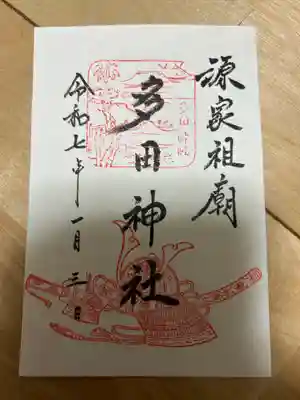 源家祖廟
多田神社
令和七年一月三日